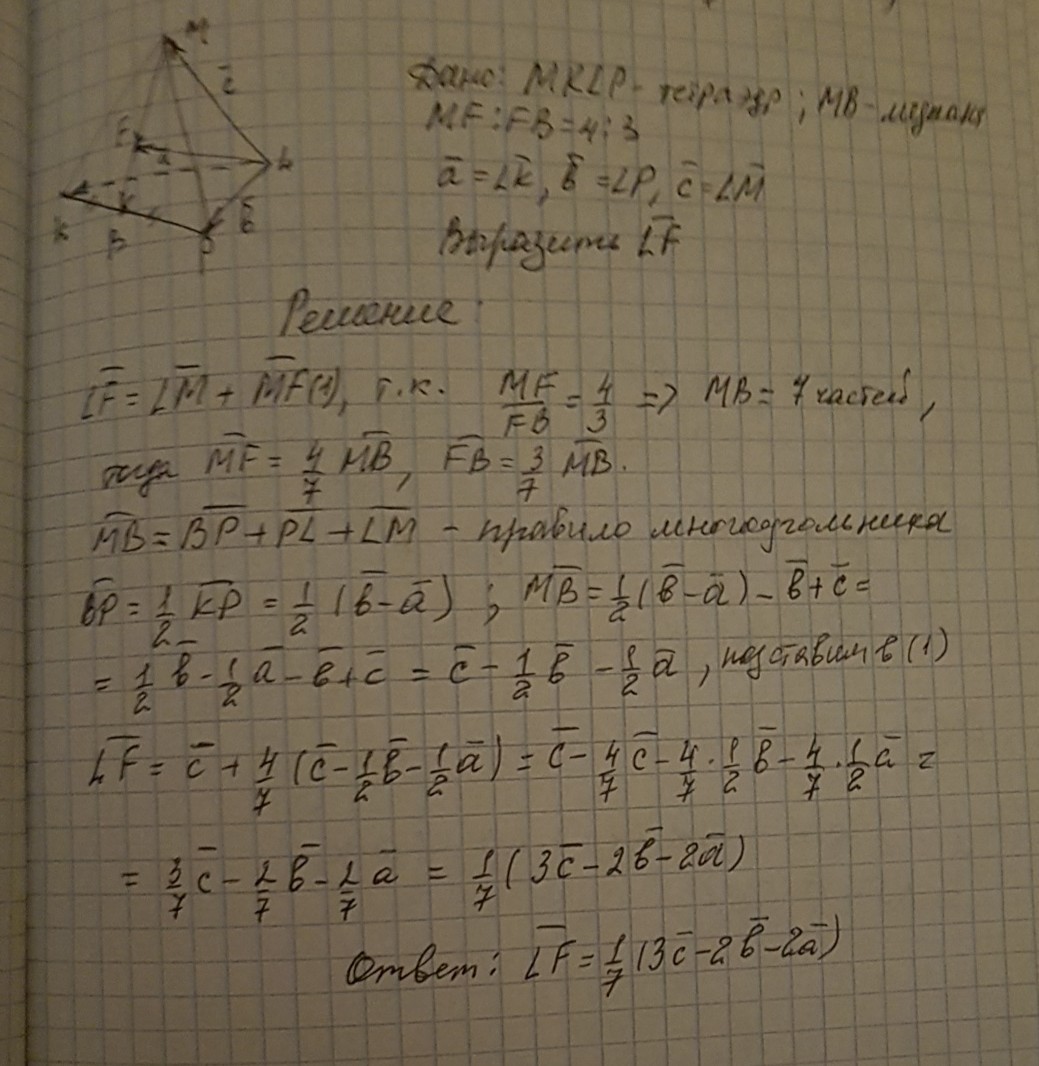 M
c̄
F
a
L
K
B
P
b̄
Дано: MKLP - тетраэдр; MB - медиана
MF:FB = 4:3
ā = LK̄, b̄ = LP̄, c̄ = LM̄
Выразить LF̄
Решение:
LF̄ = LM̄ + MF̄ (1), т.к. MF/FB = 4/3 => MB = 7 частей,
тогда MF̄ = 4/7 MB̄, FB̄ = 3/7 MB̄.
MB̄ = BP̄ + PL̄ + LM̄ - правило многоугольника
BP̄ = 1/2 KP̄ = 1/2 (b̄ - ā); MB̄ = 1/2 (b̄ - ā) - b̄ + c̄ =
= 1/2 b̄ - 1/2 ā - b̄ + c̄ = c̄ - 1/2 b̄ - 1/2 ā, подставим в (1)
LF̄ = c̄ + 4/7 (c̄ - 1/2 b̄ - 1/2 ā) = c̄ - 4/7 c̄ - 4/7 · 1/2 b̄ - 4/7 · 1/2 ā =
= 3/7 c̄ - 2/7 b̄ - 2/7 ā = 1/7 (3c̄ - 2b̄ - 2ā)
Ответ: LF̄ = 1/7 (3c̄ - 2b̄ - 2ā)